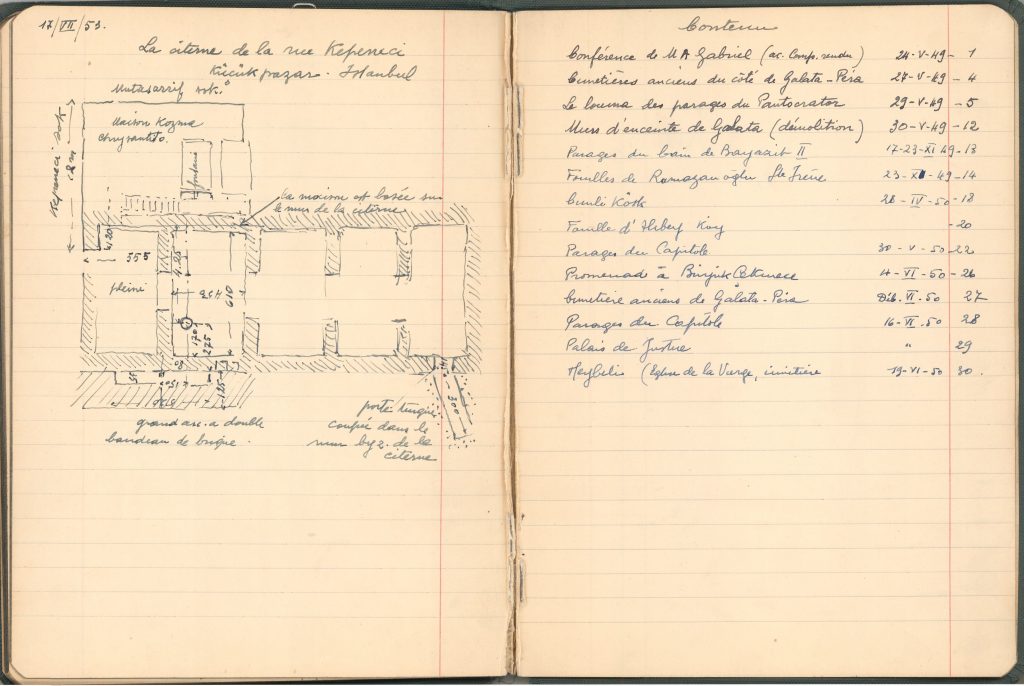 17/VII/53.
La citerne de la rue Kepeneci
Küçük pazar. Istanbul
Mutasarrif sok.
Kepeneci sok
Maison Kozma
fontaine
La maison est basée sur
le mur de la citerne
4.20
555
4.25
pleine
610
170
275
125
300
grand arc. a double
bandeau de brique.
porte turque
coupée dans le
mur byz. de la
citerne
Contenu
Conférence de M A Gabriel (ac. Comp. rendu) 24-V-49-1
Cimetières anciens du côté de Galata-Péra 27-V-49-4
Le louma des parages du Pantocrator 29-V-49-5
Murs d'enceinte de Galata (démolition) 30-V-49-12
Parages du bain de Bayazit II 17-23-XI 49-13
Fouilles de Ramazanoglu Ste Irène 23-XI-49-14
Cinili Kösk 28-IV-50-18
Fouille d' Köy -20
Parages du Capitole 30-V-50-22
Promenad à Büyük Cekmece 4-VI-50-26
Cimetière anciens de Galata-Péra VI-50 27
Parages du Capitole 16-VI.50 28
Palais de Justice " 29
Heybelis (Eglise de la Vierge, cimitière 19-VI-50 30.